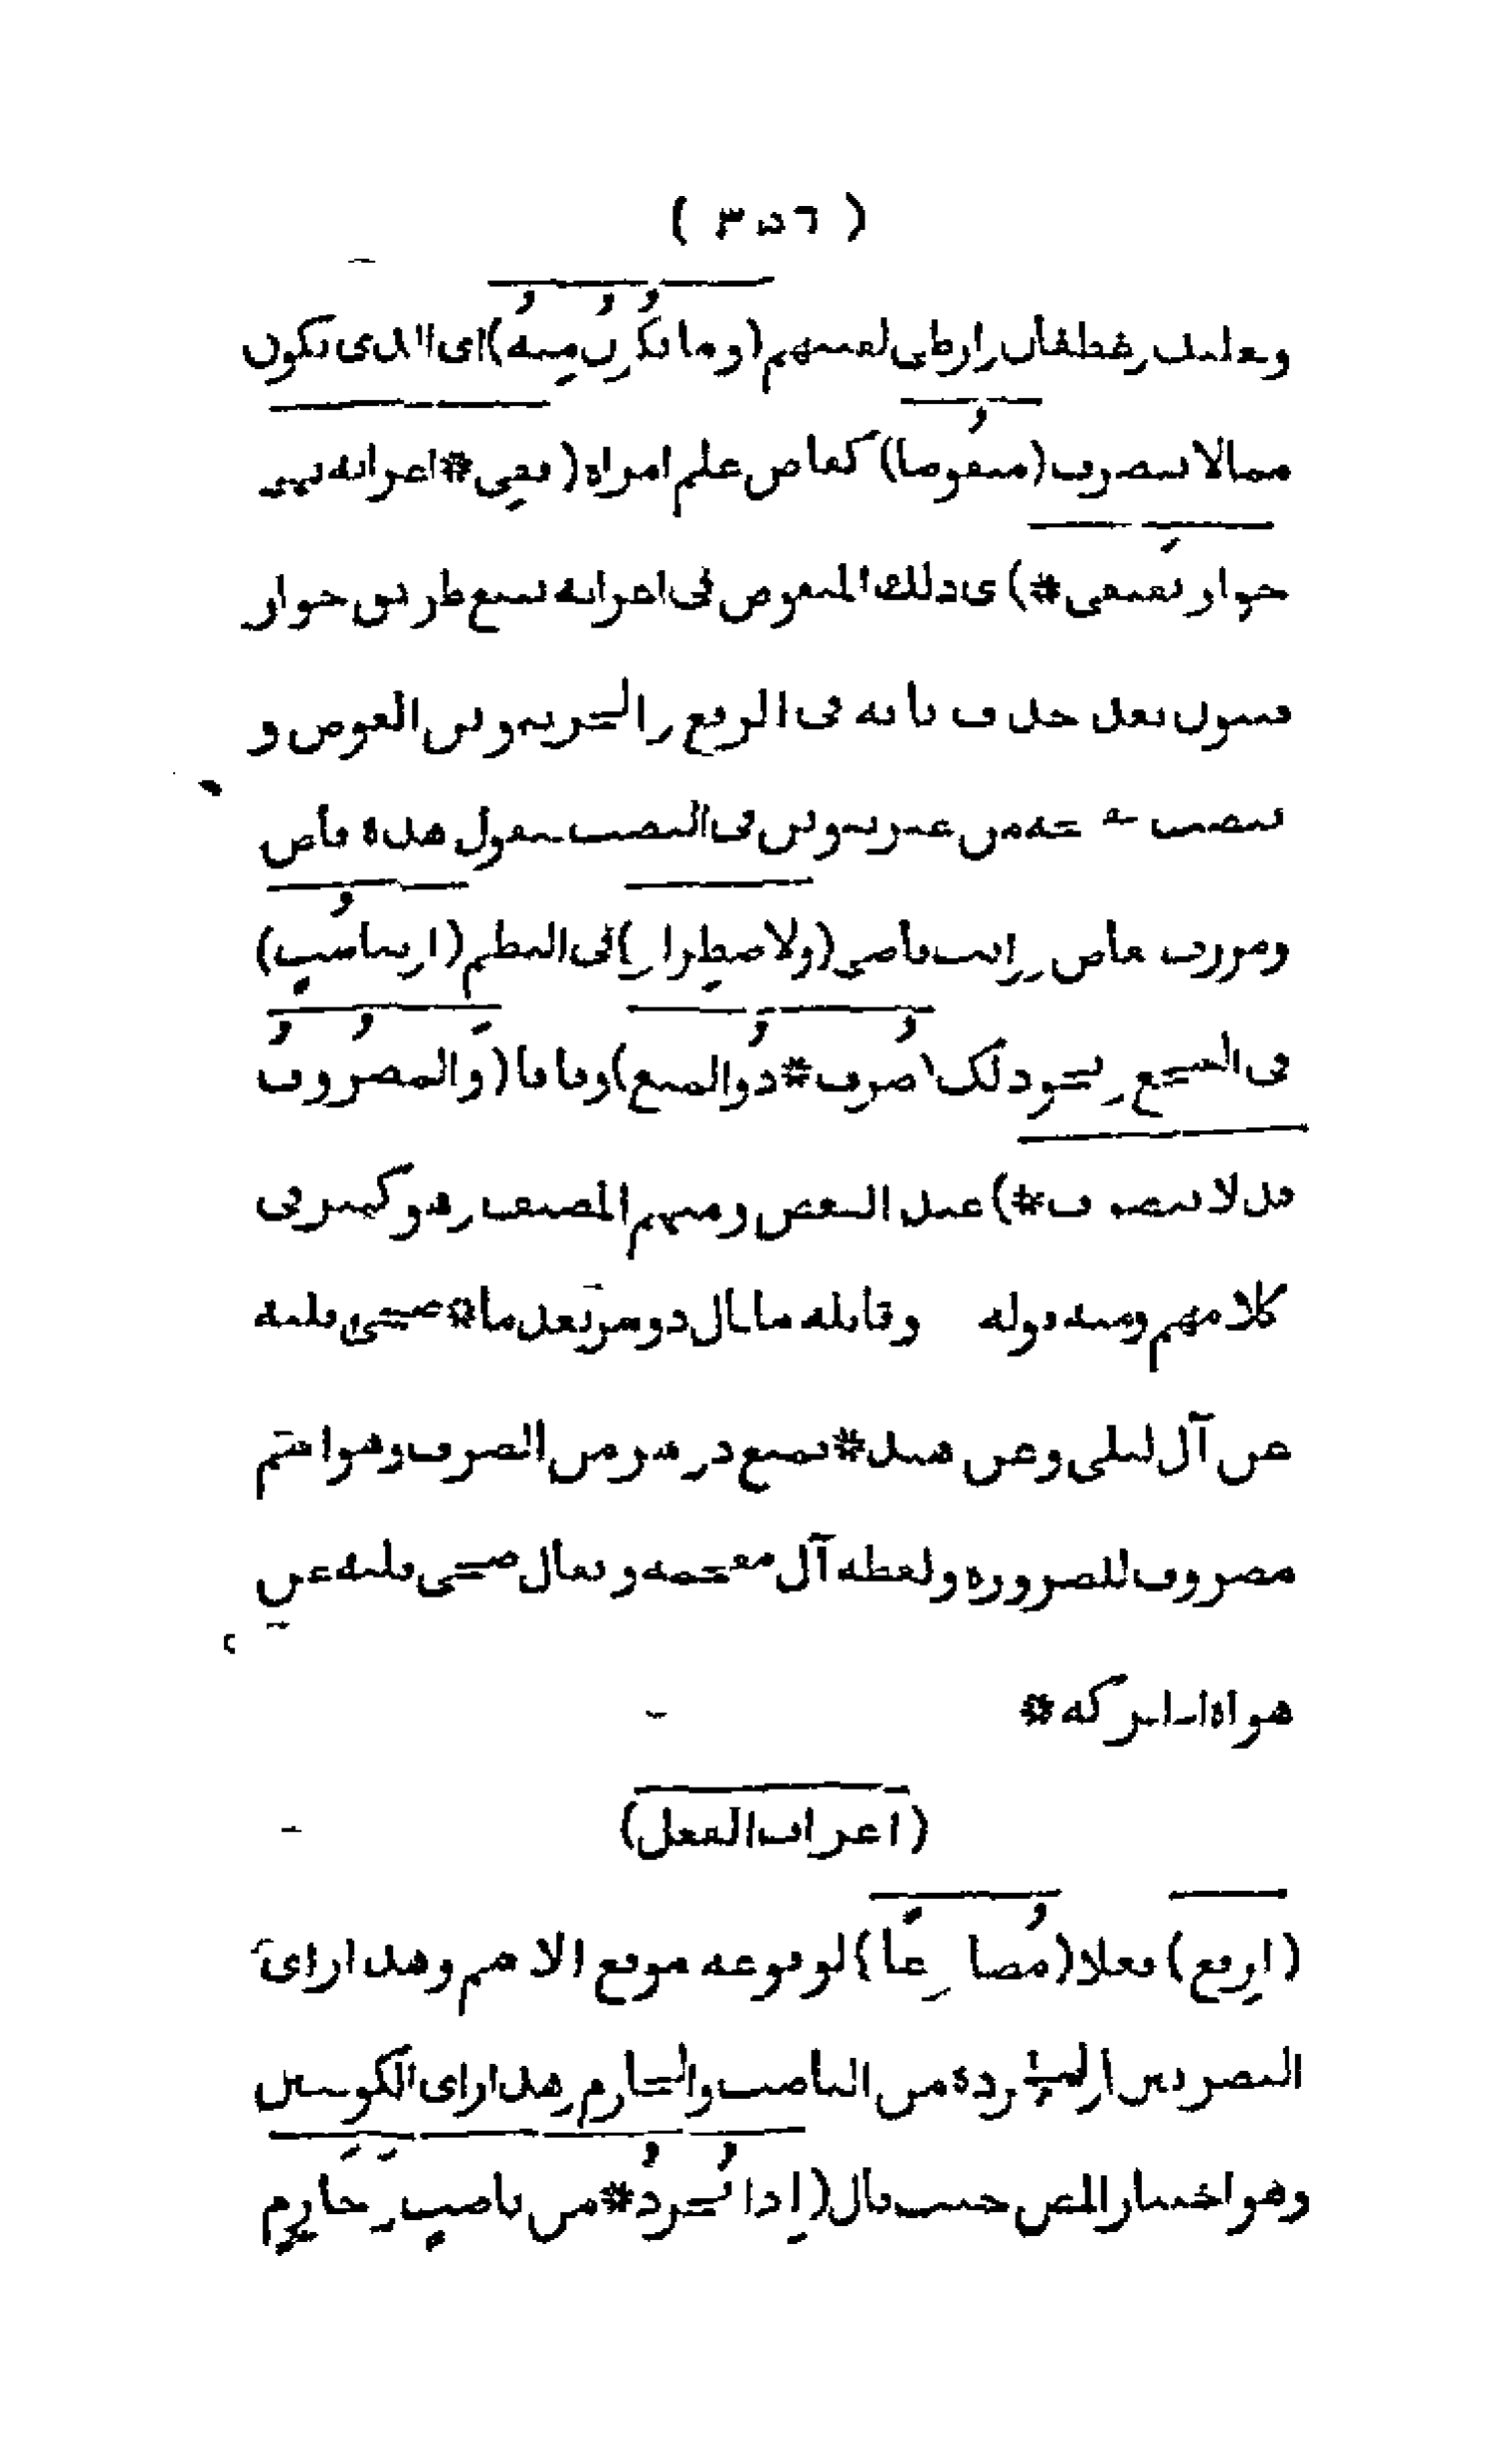 ( ٣٥٦ )
وتغلب وغطفان وأوطى لقبيلتهم (وَما يكُونُ مِنهُ) اى الذى يكون
مما لا ينصرف (منقُوصا) كقاض علم امراة (ففِى * اعرابه نهج
جوارٍ يقتفى *) ى ذلك المنقوص فى اعرابه يتبع طريق جوار
فتقول بعد حذف يائه فى الرفع والجر بتنوين العوض و
من غير تنوين فى النصب تقول هذه قاض
ومررت بقاض ورايت قاضى (ولاضطِرار) فى النظم (او تناسُبٍ)
فى السجع ونحو ذلك (صُرِف * ذُو المنع) وفاقا (وَالمصرُوفُ
قد لا ينصرف *) عند البعض ومنهم المصنف وهو كثير فى
كلامهم ومنه قوله وقائله ما بال دوسر بعد ما * صحى قلبه
عن آل ليلى وعن هند * بمنع دوسر من الصرف وهو اسم
مصروف للضرورة ولفظه آل مقحمه ويقال صحى قلبه عن
هواه اى تركه *
(اعراب الفعل)
(ارفع) فعلا (مُضارعًا) لوقوعه موقع الاسم وهذا راى
البصريين او لتجرده من الناصب والجازم وهذا راى الكوفيين
وهو اختيار المص حيث قال (إذا يُجرَّدُ * من ناصبٍ وجازِمٍ